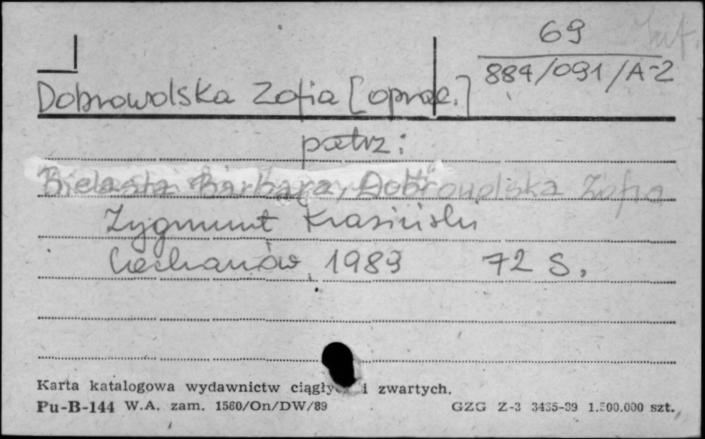 69
884/091/A-2
Dobrowolska Zofia [oprac.]
patrz:
Bielasta Barbara, Dobrowolska Zofia
Zygmunt Krasiński
Ciechanów, 1983 72 S.
Karta katalogowa wydawnictw ciągłych i zwartych.
Pu-B-144 W.A. zam. 1560/On/DW/89 GZG Z-3 3435-89 1.500.000 szt.